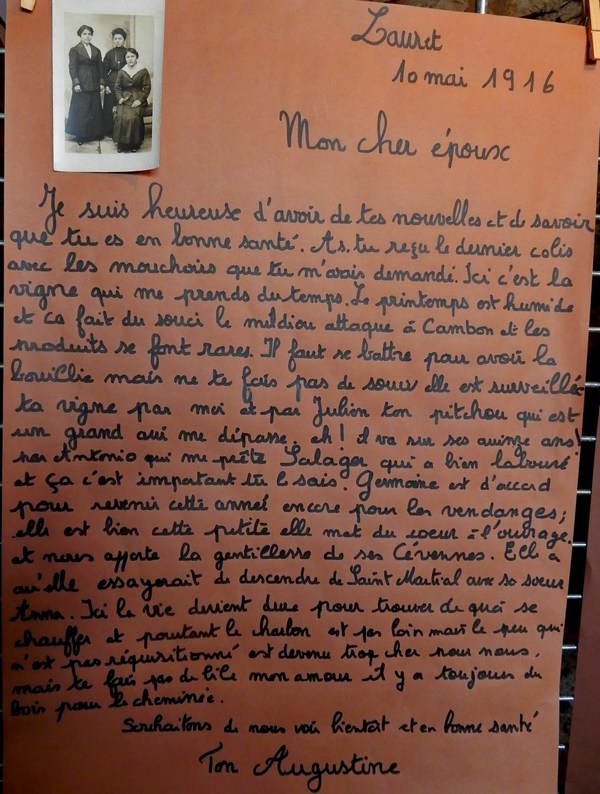 Lauret
10 mai 1916
Mon cher époux
Je suis heureuse d'avoir de tes nouvelles et de savoir
que tu es en bonne santé. As.tu reçu le dernier colis
avec les mouchoirs que tu m'avais demandé. Ici c'est la
vigne qui me prends du temps. Le printemps est humide
et ca fait du souci le mildiou attaque à Cambon et les
produits se font rares. Il faut se battre pour avoir la
bouillie mais ne te fais pas de souci elle est surveillée
ta vigne par moi et par Julien ton pitchou qui est
un grand qui me dépasse. eh! il va sur ses quinze ans!
par Antonio qui me prête Salager qui a bien labouré
et ça c'est important tu le sais. Germaine est d'accord
pour revenir cette année encore pour les vendanges;
elle est bien cette petite elle met du coeur à l'ouvrage
et nous apporte la gentillesse de ses Cévennes. Elle a
qu'elle essayerait de descendre de Saint Martial avec sa soeur
Anna. Ici la vie devient dure pour trouver de quoi se
chauffer et pourtant le charbon est pas loin mais le peu qui
n'est pas réquisitionné est devenu trop cher pour nous,
mais te fais pas de bile mon amour il y a toujours du
bois pour la cheminée.
Souhaitons de nous voir bientôt et en bonne santé
Ton Augustine